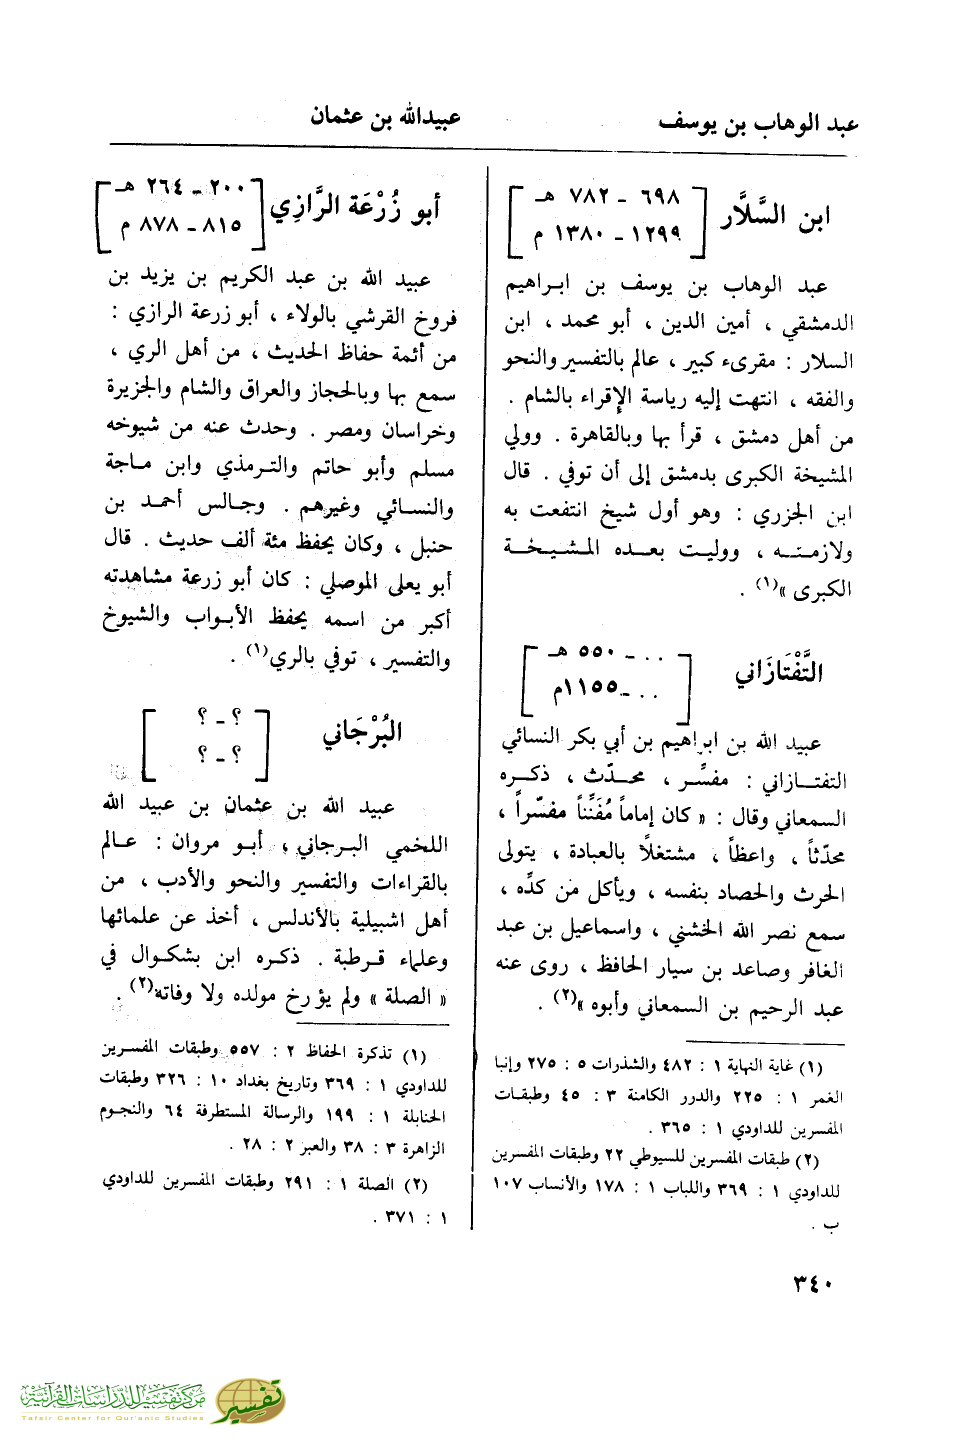 عبد الوهاب بن يوسف
عبيدالله بن عثمان
ابن السَّلَّار
٦٩٨ ـ ٧٨٢ هـ
١٢٩٩ ـ ١٣٨٠ م
عبد الوهاب بن يوسف بن ابراهيم
الدمشقي ، أمين الدين ، أبو محمد ، ابن
السلار : مقرىء كبير ، عالم بالتفسير والنحو
والفقه ، انتهت إليه رياسة الإقراء بالشام .
من أهل دمشق ، قرأ بها وبالقاهرة . وولي
المشيخة الكبرى بدمشق إلى أن توفي . قال
ابن الجزري : وهو أول شيخ انتفعت به
ولازمته ، ووليت بعده المشيخة
الكبرى »(١) .
التَّفْتَازَاني
. . ـ ٥٥٠ هـ
. . ـ ١١٥٥م
عبيد الله بن ابراهيم بن أبي بكر النسائي
التفتازاني : مفسَّر ، محدّث ، ذكره
السمعاني وقال : « كان إماماً مُفَنِّناً مفسّراً ،
محدّثاً ، واعظاً ، مشتغلاً بالعبادة ، يتولى
الحرث والحصاد بنفسه ، ويأكل من كدِّه ،
سمع نصر الله الخشني ، واسماعيل بن عبد
الغافر وصاعد بن سيار الحافظ ، روى عنه
عبد الرحيم بن السمعاني وأبوه »(٢) .
(١) غاية النهاية ١ : ٤٨٢ والشذرات ٥ : ٢٧٥ وإنبا
الغمر ١ : ٢٢٥ والدرر الكامنة ٣ : ٤٥ وطبقات
المفسرين للداودي ١ : ٣٦٥ .
(٢) طبقات المفسرين للسيوطي ٢٢ وطبقات المفسرين
للداودي ١ : ٣٦٩ واللباب ١ : ١٧٨ والأنساب ١٠٧
ب .
أبو زُرْعَة الرَّازِي
٢٠٠ ـ ٢٦٤ هـ
٨١٥ ـ ٨٧٨ م
عبيد الله بن عبد الكريم بن يزيد بن
فروخ القرشي بالولاء ، أبو زرعة الرازي :
من أئمة حفاظ الحديث ، من أهل الري ،
سمع بها وبالحجاز والعراق والشام والجزيرة
وخراسان ومصر . وحدث عنه من شيوخه
مسلم وأبو حاتم والترمذي وابن ماجة
والنسائي وغيرهم . وجالس أحمد بن
حنبل ، وكان يحفظ مئة ألف حديث . قال
أبو يعلى الموصلي : كان أبو زرعة مشاهدته
أكبر من اسمه يحفظ الأبواب والشيوخ
والتفسير ، توفي بالري(١) .
البُرْجَاني
؟ ـ ؟
؟ ـ ؟
عبيد الله بن عثمان بن عبيد الله
اللخمي البرجاني ، أبو مروان : عالم
بالقراءات والتفسير والنحو والأدب ، من
أهل اشبيلية بالأندلس ، أخذ عن علمائها
وعلماء قرطبة . ذكره ابن بشكوال في
« الصلة » ولم يؤرخ مولده ولا وفاته(٢) .
(١) تذكرة الحفاظ ٢ : ٥٥٧ وطبقات المفسرين
للداودي ١ : ٣٦٩ وتاريخ بغداد ١٠ : ٣٢٦ وطبقات
الحنابلة ١ : ١٩٩ والرسالة المستطرفة ٦٤ والنجوم
الزاهرة ٣ : ٣٨ والعبر ٢ : ٢٨ .
(٢) الصلة ١ : ٢٩١ وطبقات المفسرين للداودي
١ : ٣٧١ .
٣٤٠
مركز تفسير للدراسات القرآنية
Tafsir Center for Qur'anic Studies
تفسير